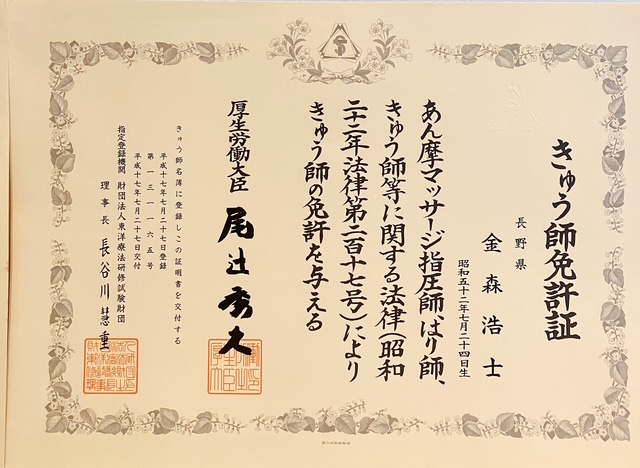 きゅう師免許証
長野県
金森浩士
昭和五十二年七月二十四日生
あん摩マッサージ指圧師、はり師、
きゅう師等に関する法律(昭和
二十二年法律第二百十七号)により
きゅう師の免許を与える
厚生労働大臣
尾辻秀久
きゅう師名簿に登録しこの証明書を交付する
平成十七年七月二十七日登録
第一三一一六五号
平成十七年七月二十七日交付
指定登録機関 財団法人東洋療法研修試験財団
理事長 長谷川慧重